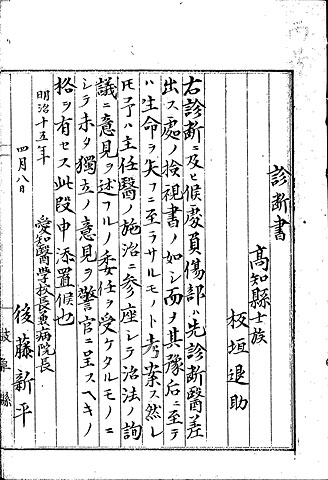 診断書
高知縣士族
板垣退助
右診断ニ及ヒ候處負傷部ハ先診断醫差
出ス處ノ検視書ノ如シ而ヲ其豫后ニ至テ
ハ生命ヲ失フニ至ラサルモノト考案ス然レ
𪜈予ハ主任醫ノ施治ニ参座シテ治法ノ詢
議ニ意見ヲ述フルノ委任ヲ受ケタルモノニ
シテ未タ獨立ノ意見ヲ警官ニ呈スヘキノ
格ヲ有セス此段申添置候也
明治十五年
四月八日
愛知醫学校長兼病院長
後藤新平
岐阜縣